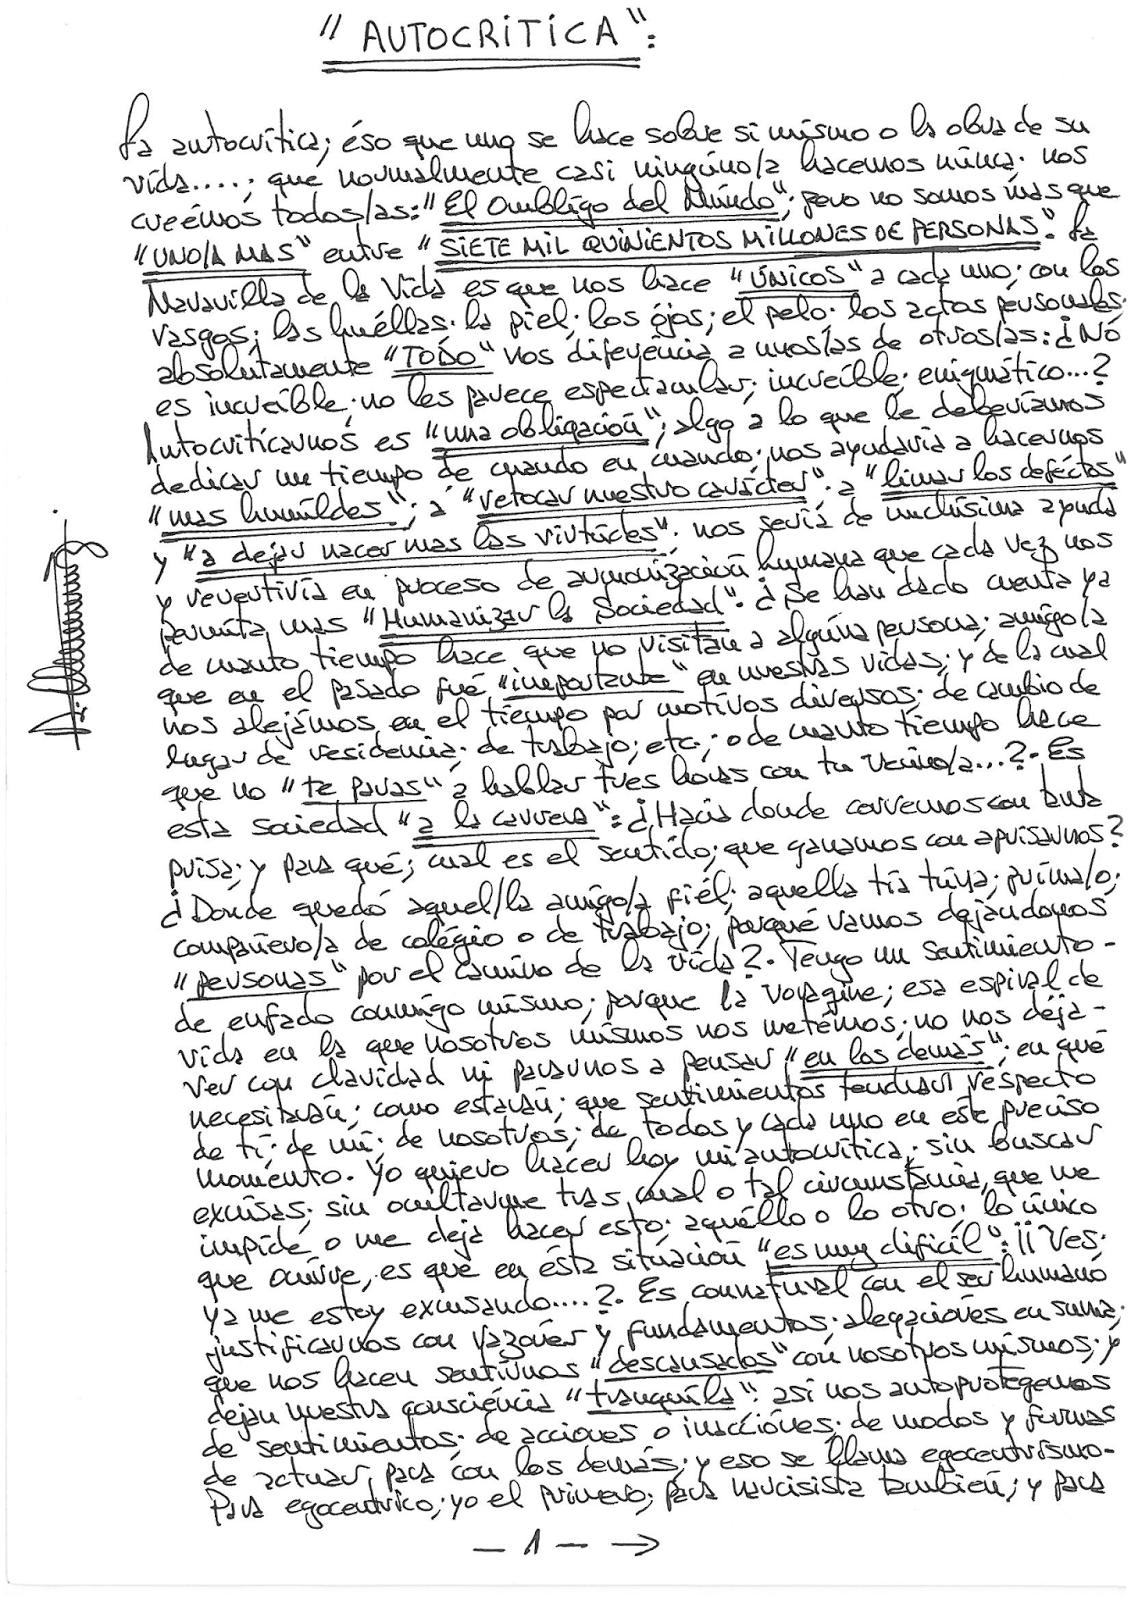 "AUTOCRITICA":
La autocrítica; éso que uno se hace sobre si mismo o la obra de su
vída....; que normalmente casi ningúno/a hacemos núnca. nos
creémos todos/as: "El Omblígo del Múndo"; pero no somos más que
"UNO/A MAS" entre "SIETE MIL QUINIENTOS MILLONES DE PERSONAS". La
Maravilla de la Vida es que nos hace "ÚNICOS" a cada uno; con los
rasgos; las huéllas. la piel; los ójos; el pelo. los actos personales.
absolutamente "TODO" nos diferéncia a unos/as de otros/as: ¿Nó
es increíble; no les parece espectacular; increíble; enigmático...?
Autocríticarnos es "una obligación"; algo a lo que le deberíamos
dedicar un tiempo de cuando en cuando; nos ayudaría a hacernos
"mas humíldes"; a "retocar nuestro carácter". a "limar los deféctos"
y "a dejar nacer mas las virtúdes". nos sería de muchísima ayuda
y revertiría en proceso de armonización humana que cada vez nos
permita mas "Humanizar la Sociedad". ¿Se han dado cuenta ya
de cuanto tiempo hace que no visitan a algúna persona; amigo/a
que en el pasado fué "importante" en nuestras vidas; y de la cual
nos alejámos en el tiempo por motivos diversos; de cambio de
lugar de residencia; de trabajo; etc; o de cuanto tiempo hace
que no "te paras" a hablar tres horas con tu vecino/a...?. Es
esta sociedad "a la carrera": ¿Hacia donde corremos con tanta
prisa; y para qué; cual es el sentído; que ganamos con aprisarnos?
¿Donde quedó aquel/la amigo/a fiél; aquella tía túya; príma/o;
compañero/a de colégio o de trabajo; porqué vamos dejándonos
"personas" por el camino de la vída?. Tengo un sentimiento-
de enfado conmigo mismo; porque la vorágine; esa espiral de
vida en la que nosotros mismos nos metémos; no nos déja-
ver con claridad ni pararnos a pensar "en los demás"; en qué
necesitarán; como estarán; que sentimientos tendrán respecto
de tí; de mí; de nosotros; de todos y cada uno en este preciso
moménto. Yo quiero hacer hoy mi autocrítica; sin buscar
excúsas; sin ocultarme tras cual o tal circunstáncia, que me
impíde o me deja hacer esto; aquéllo o lo otro; lo único
que ocúrre, es que en ésta situación "es muy dificíl": ¡¡Ves;
ya me estoy excusando....?. Es connatural con el ser humano
justificarnos con razónes y fundamentos. alegaciónes en suma;
que nos hacen sentírnos "descansados" con nosotros mísmos; y
dejan nuestra consciéncia "tranquíla". asi nos autoprotegemos
de sentimientos. de acciones o inacciónes; de modos y formas
de actuar para con los demás; y eso se llama egocentrísmo-
Para egocentríco; yo el primero; para narcisista también; y para
- 1 - →